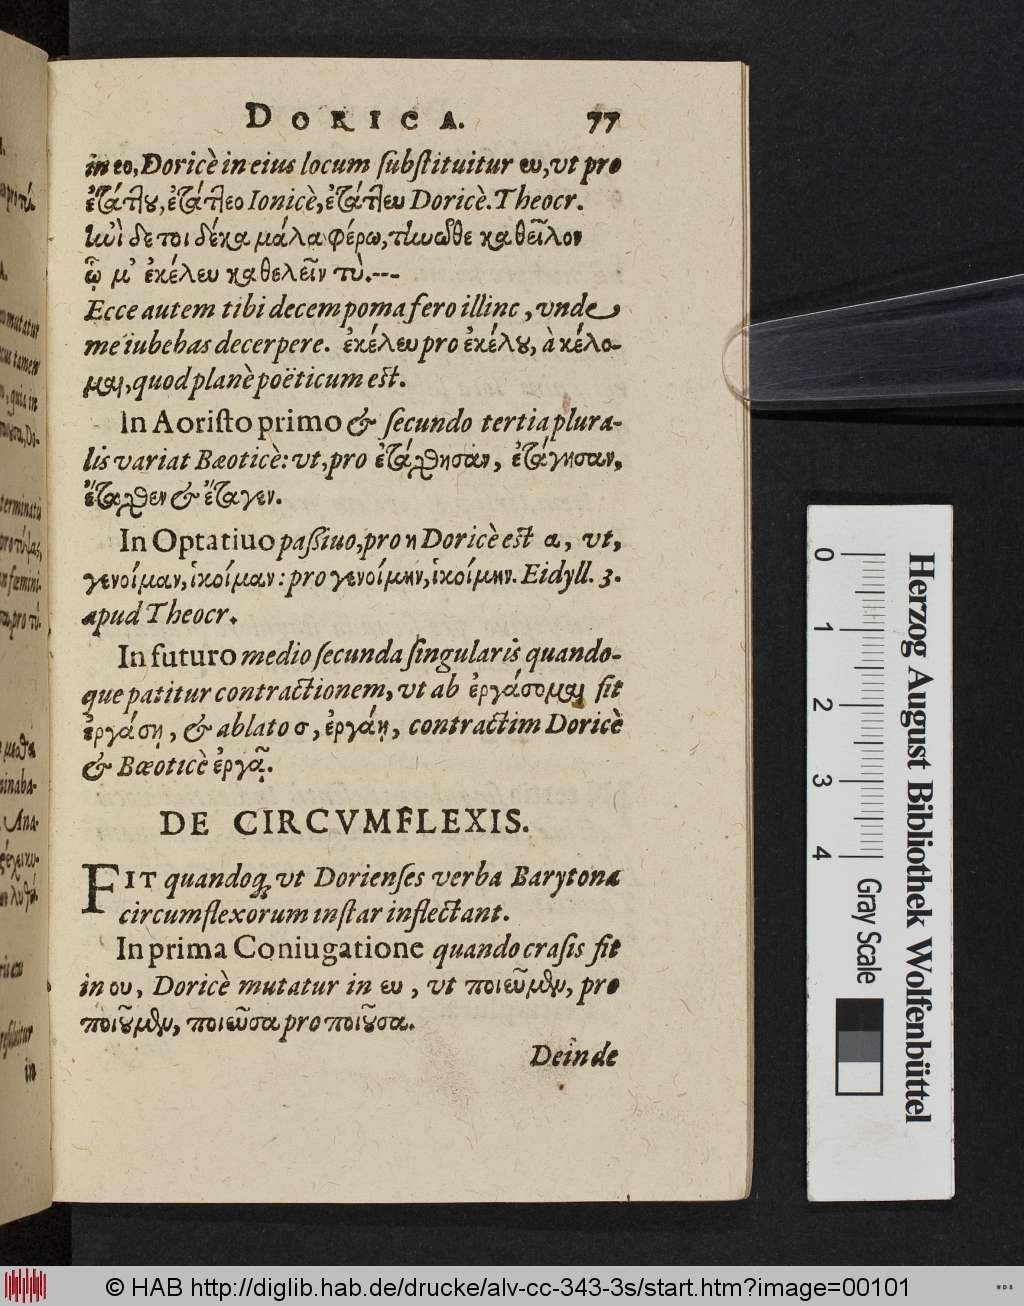 DORICA. 77
in εο, Doricè in eius locum substituitur ευ, vt pro
ἐτάττου, ἐτάττεο Ionicè, ἐτάττευ Doricè. Theocr.
ἠνὶ δέ τοι δέκα μάλα φέρω, τηνῶθε καθεῖλον
ᾧ μ' ἐκέλευ καθελεῖν τὺ.---
Ecce autem tibi decem poma fero illinc, vnde
me iubebas decerpere. ἐκέλευ pro ἐκέλου, à κέλο-
μαι, quod planè poëticum est.
In Aoristo primo & secundo tertia plura-
lis variat Bæoticè: vt, pro ἐτάρθησαν, ἐτάγησαν,
ἔταρθεν & ἔταγεν.
In Optatiuo passiuo, pro η Doricè est α, vt,
γενοίμαν, ἱκοίμαν: pro γενοίμην, ἱκοίμην. Eidyll. 3.
apud Theocr.
In futuro medio secunda singularis quando-
que patitur contractionem, vt ab ἐργάσομαι fit
ἐργάσῃ, & ablato σ, ἐργάῃ, contractim Doricè
& Bæoticè ἐργᾷ.
DE CIRCVMFLEXIS.
FIT quandoq; vt Dorienses verba Barytona
circumflexorum instar inflectant.
In prima Coniugatione quando crasis fit
in ου, Doricè mutatur in ευ, vt ποιεῦμεν, pro
ποιοῦμεν, ποιεῦσα pro ποιοῦσα.
Deinde
Herzog August Bibliothek Wolfenbüttel
0 1 2 3 4 Gray Scale
© HAB http://diglib.hab.de/drucke/alv-cc-343-3s/start.htm?image=00101